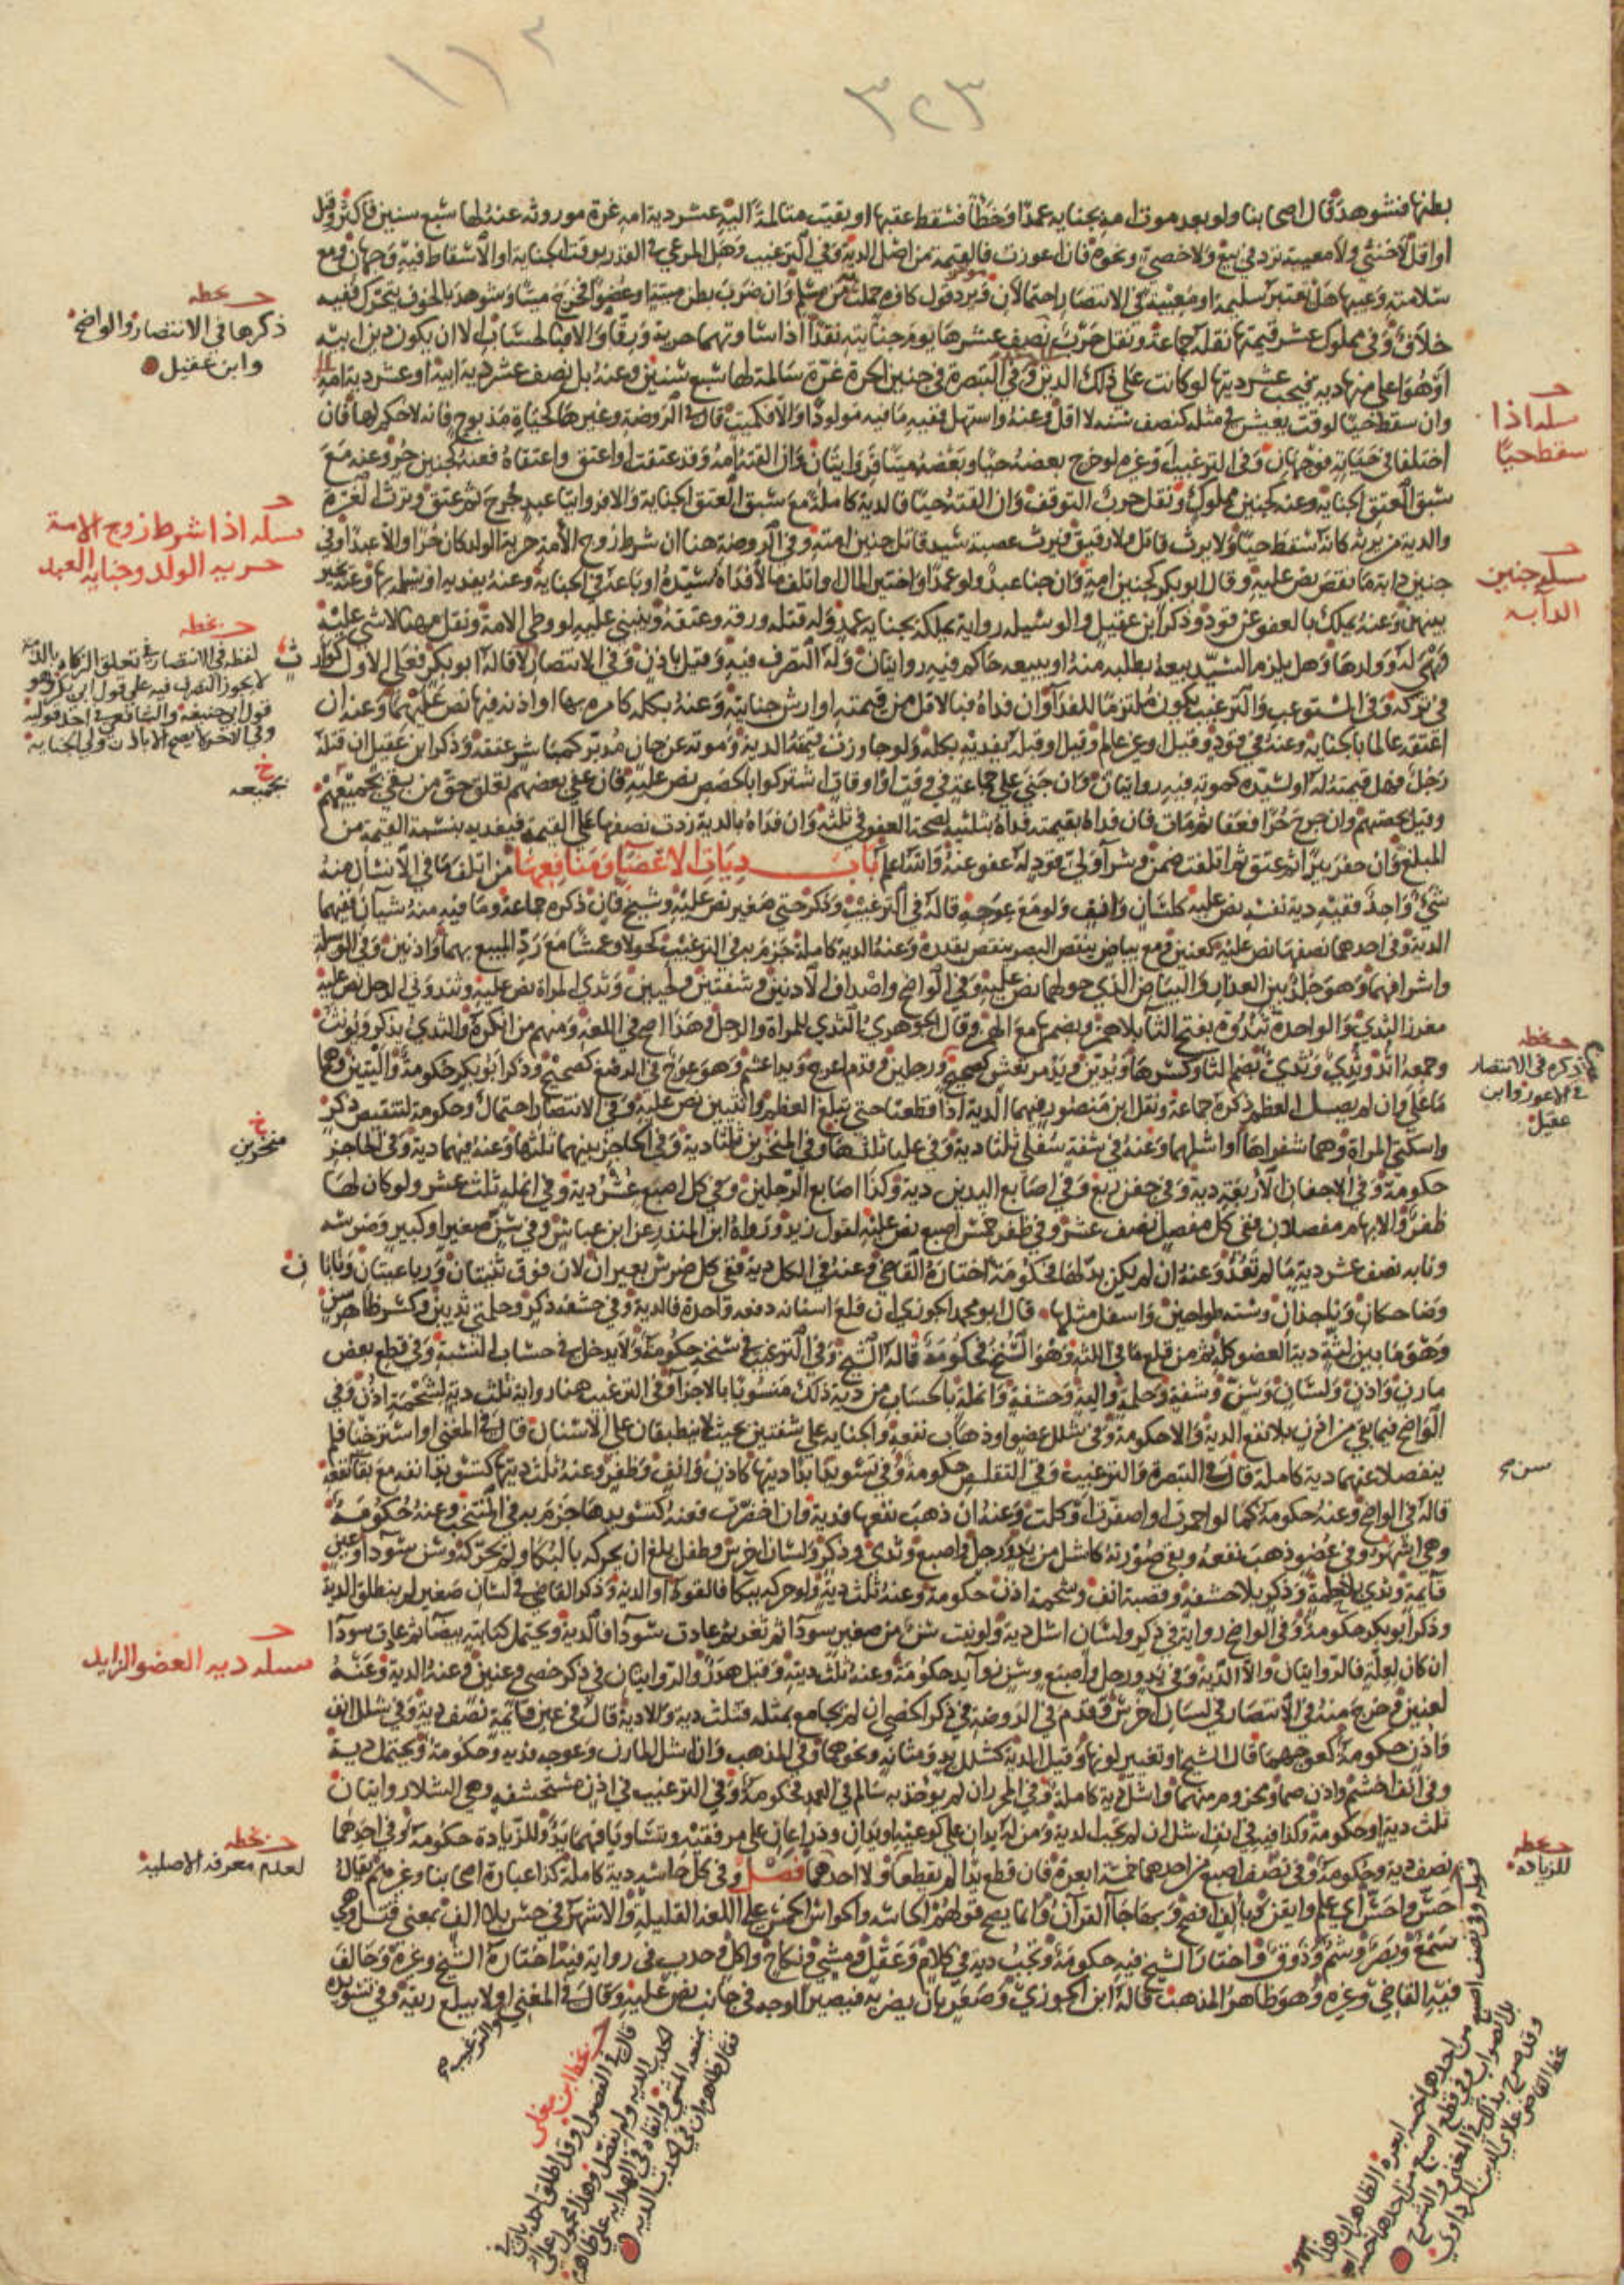 ١١٢
٣٢٣
بطنها فنشوهد قال اصحابنا ولو بعد موت امه بجنايه عمدا وخطأ فسقط عقبها او بقيت متالمة اليه عشر دية امه غرة موروثه عنه لها سبع سنين فاكثر وقيل
او اقل لا خنثى ولا معيبة ترد في بيع ولا خصي ونحوه فان اعوزت فالقيمة من اصل الدية وفي الترغيب وهل المرعي في القدر بوقت الجناية او الاسقاط فيه وجهان ومع
سلامته وعيبها هل تعتبر سليمة او معيبة في الانتصار احتمالان
خلاف وفي مملوك عشر قيمتها نقله جماعة ونقل حرب نصف عشرها يوم جنايته نقدا اذا ساوتهما حرية ورقا والا فبالحساب الا ان يكون دين ابيه
او هو اعلى منها دية فيجب عشر ديتها لو كانت على ذلك الدين وفي التبصرة في جنين الحرة غرة سالمة لها سبع سنين وعنه بل نصف عشر دية ابيه او عشر دية امه
وان سقط حيا لوقت يعيش في مثله كنصف سنه لا اقل وعنه واستهل ففيه ما فيه مولودا والا فكميت قال في الروضة وغيرها كحياة مذبوح فانه لا حكم لها فان
اختلفا في حياته فوجهان وفي الترغيب وغيره لو خرج بعضه حيا وبعضه ميتا فروايتان وان القته امة وقد عتقت او اعتق واعتقاه فعنه كجنين حر وعنه مع
سبق العتق الجناية وعنه كجنين مملوك ونقل حرب التوقف وان القته حيا فالدية كاملة مع سبق العتق الجناية والا فروايتا عبد جرح ثم عتق ويرث الغرة
والدية من يرثه كانه اسقط حيا ولا يرث قاتل ولا رقيق فيرث عصبة سيد قاتل جنين امته وفي الروضة هنا ان شرط زوج الامة حرية الولد كان حرا والا عبدا وفي
جنين دابة ما نقص نص عليه وقال ابو بكر كجنين امة وان جنا عبد ولو عمدا او اختير المال او اتلف مالا فداه سيده او باعه في الجناية وعنه يفديه او يسلمه بها وعنه يخير
بينهن وعنه يملك بالعفو عن قود وذكر ابن عقيل والوسيلة رواية يملكه بجناية عمد وله قتله ورقه وعتقه وينبني عليه لو وطي الامة ونقل مهنا لا شي عليه
وهي له وولدها وهل يلزم السيد بيعه بطلبه منه او يبيعه حاكم فيه روايتان وله التصرف فيه وقيل باذن وفي الانتصار لا قاله ابو بكر فعلى الاول كوارث
في تركة وفي المستوعب والترغيب يكون ملتزما للفدا وان فداه فبالاقل من قيمته او ارش جنايته وعنه بكله كامره بها او اذنه فيها نص عليهما وعنه ان
اعتقه عالما بالجناية وعنه في قود وقيل او غير عالم وقيل او قبله يفديه بكله ولو جاوزت قيمته الدية وموته عن جان مدبر كمباشر عتقه وذكر ابن عقيل ان قتله
رجل فهل قيمته له او لسيده كموته فيه روايتان وان جنى على جماعة في وقت او اوقات اشتركوا بالحصص نص عليه فان عفى بعضهم تعلق حق من بقي بجميعهم
وقيل بحصتهم وان جرح حرا فعفا ثم مات فان فداه بقيمته فداه بثلثيه لصحة العفو في ثلثه وان فداه بالدية زدت نصفها على القيمة فيفديه بنسبة القيمة من
المبلغ وان حفر بيرا ثم عتق ثم تلفت ضمن وشرآ ولي قود له عفو عنه والله اعلم باب ديات الاعضا ومنافعها من اتلف ما في الانسان منه
شي واحد ففيه دية نفسه نص عليه كلسان وانف ولو مع عوجه قاله في الترغيب وذكر حتى صغير نص عليه وشيخ فان ذكره جماعة وما فيه منه شيان ففيهما
الدية وفي احدهما نصفها نص عليه كعينين ومع بياض ينقص البصر ينقص بقدره وعنه الدية كاملة جزم به في الترغيب كحولا وعمشا مع رد المبيع بهما واذنين وفي الوسيلة
واشرافهما وهو جلد بين العذار والبياض الذي حولهما نص عليه وفي الواضح واصداف الاذنين وشفتين ولحيين وثدي المراة نص عليه وثندوتي الرجل نص عليه
مغرز الثدي والواحدة ثندوة بفتح الثا بلا همز وبضمها مع الهمز وقال الجوهري الثدي للمراة والرجل وهذا اصح في اللغة ومنهم من انكره والثدي يذكر ويونث
وجمعه اثد وثدي وثدي بضم الثا وكسرها ويدين ويد مرتعش كصحيح ورجلين وقدم اعرج ويد اعسم وهو عوج في الرسغ كصحيح وذكر ابو بكر حكومة واليتين وهما
ما علا وان لم يصل العظم ذكره جماعة ونقل ابن منصور فيهما الدية اذا قطعتا حتى تبلغ العظم وانثيين نص عليه وفي الانتصار احتمال وحكومة لتنقيص ذكر
واسكتي المراة وهما شفراها او اشلهما وعنه في شفة سفلى ثلثا دية وفي عليا ثلثها وفي المنخرين ثلثا دية وفي الحاجز بينهما ثلثها وعنه فيهما دية وفي الحاجز
حكومة وفي الاجفان الاربعة دية وفي جفن ربع وفي اصابع اليدين دية وكذا اصابع الرجلين وفي كل اصبع عشر دية وفي انملة ثلث عشر ولو كان لها
ظفر والابهام مفصلان ففي كل مفصل نصف عشر وفي ظفر خمس اصبع نص عليه لقول زيد ورواه ابن المنذر عن ابن عباس وفي سن صغير او كبير وضرسه
ونابه نصف عشر دية ما لم تعد وعنه ان لم يكن بدلها فحكومة اختاره القاضي وعنه في الكل دية ففي كل ضرس بعيران لان فوق ثنيتان ورباعيتان ونابا
وضاحكان وناجذان وسته طواحين واسفل مثلها قال ابو محمد الجوزي ان قلع اسنانه دفعة واحدة فالدية وفي حشفة ذكر وحلمتي ثديين وكسر ظاهر سن
وهو ما بين لثة دية العضو كله ثم من قلع ما في اللثة وهو السنخ فحكومة قاله الشيخ وفي الترغيب في سنخه حكومة ولا يدخل في حساب النسبة وفي قطع بعض
مارن واذن ولسان وسن وشفة وحلمة والية وحشفة وانملة بالحساب من دية ذلك منسوبا بالاجزا وفي الترغيب هنا رواية ثلث دية لشحمة اذن وفي
الواضح فيما بقي من اذن بلا نفع الدية والا حكومة وفي شلل عضو او ذهاب نفعه والجناية على شفتين بحيث لا ينطبقان على الاسنان قال في المغني او استرختا فلم
ينفصلا عنهما دية كاملة قال في التبصرة والترغيب وفي التقلص حكومة وفي تسويدها ابدا ديتها كاذن وانف وظفر وعنه ثلث ديتها كتسويد انفه مع بقا نفعه
قاله في الواضح وعنه حكومة كما لو احمرت او اصفرت او كلت وعنه ان ذهب نفعها فدية وان اخضرت فعنه كتسويدها جزم به في المنتخب وعنه حكومة
وهي اشهر وفي عضو ذهب نفعه وبقي صورته كاشل من يد ورجل واصبع وثدي وذكر ولسان اخرس وطفل بلغ ان يحركه بالبكا ولم يحركه وسن سودآ وعين
قائمة وثدي بلا حلمة وذكر بلا حشفة وقصبة انف وشحمة اذن حكومة وعنه ثلث دية ولو حركه ببكا فالقود او الدية وذكر القاضي في لسان صغير لم ينطلق الدية
وذكر ابو بكر حكومة وفي الواضح رواية في ذكر ولسان اشل دية ولو نبت سن من صغير سودآ ثم ثغر ثم عادت سودآ فالدية ويحتمل كنابته بيضآ ثم عادت سودآ
ان كان لعلة فالروايتان والا الدية وفي يد ورجل واصبع وسن زوايد حكومة وعنه ثلث دية وقيل هدر والروايتان في ذكر خصي وعنين وعنه الدية وعنه
لعنين وخرج منه في الانتصار في لسان اخرس وقدم في الروضة في ذكر الخصي ان لم يجامع بمثله فثلث دية والا دية قال وفي عين قائمة نصف دية وفي شلل انف
واذن حكومة كعوجهما قال الشيخ او تغيير لونهما وقيل الدية كشلل يد ومثانة ونحوهما وفي المذهب وان اشل المارن وعوجه فدية وحكومة ويحتمل دية
وفي انف اخشم واذن صما ومخزومهما واشل دية كاملة وفي المحرر ان لم يوخذ به سالم في العمد فحكومة وفي الترغيب في اذن مستحشفة وهي الشلا روايتان
ثلث دية او حكومة وكذا فيه في انف اشل ان لم تجب الدية ومن له يدان على كوعيه او يدان وذراعان على مرفقيه وتساويا فهما يد وللزيادة حكومة وفي احدهما
نصف دية وحكومة وفي نصف اصبع من احدهما خمسة ابعرة فان قطع يدا لم يقطعا ولا احدهما فصل وفي كل حاسة دية كاملة كذا عبارة اصحابنا وغيرهم يقال
حس واحس اي علم وايقن وبالف افصح وبها جا القران وانما يصح قولهم الحاسه والحواس الخمس على اللغة القليلة والاشهر في حس بلا الف بمعنى قتل وهي
سمع وبصر وشم وذوق واختار الشيخ فيه حكومة وتجب دية في كلام وعقل ومشي ونكاح واكل وحدب في رواية فيه اختاره الشيخ وغيره وخالف
فيه القاضي وغيره وهو ظاهر المذهب قاله ابن الجوزي وصعر بان يضربه فيصير الوجه في جانب نص عليه وقال في المغني او لا يبلع ريقه وفي تسويده
حـ بخطه
ذكرها في الانتصار والواضح
وابن عقيل
مسلة اذا
سقط حيا
مسلة اذا شرط زوج الامة
حرية الولد وجناية العبد
مسلة جنين
الدآبه
حـ بخطه
لفظه في الانتصار في تعلق الزكاة بالذمة
لا يجوز التصرف فيه على قول ابي بكر وهو
قول ابي حنيفة والشافعي في احد قوليه
وفي الاخر لا يصح الا باذن ولي الجناية
خ
بجميعه
حـ بخطه
ذكره في الانتصار
في الاعور وابن
عقيل
خ
منخرين
ن
مسلة دية العضو الزايد
حـ بخطه
لعدم معرفة الاصلية
حـ بخطه
للزيادة
والترغيب صح
حـ بخط ابن مغلي